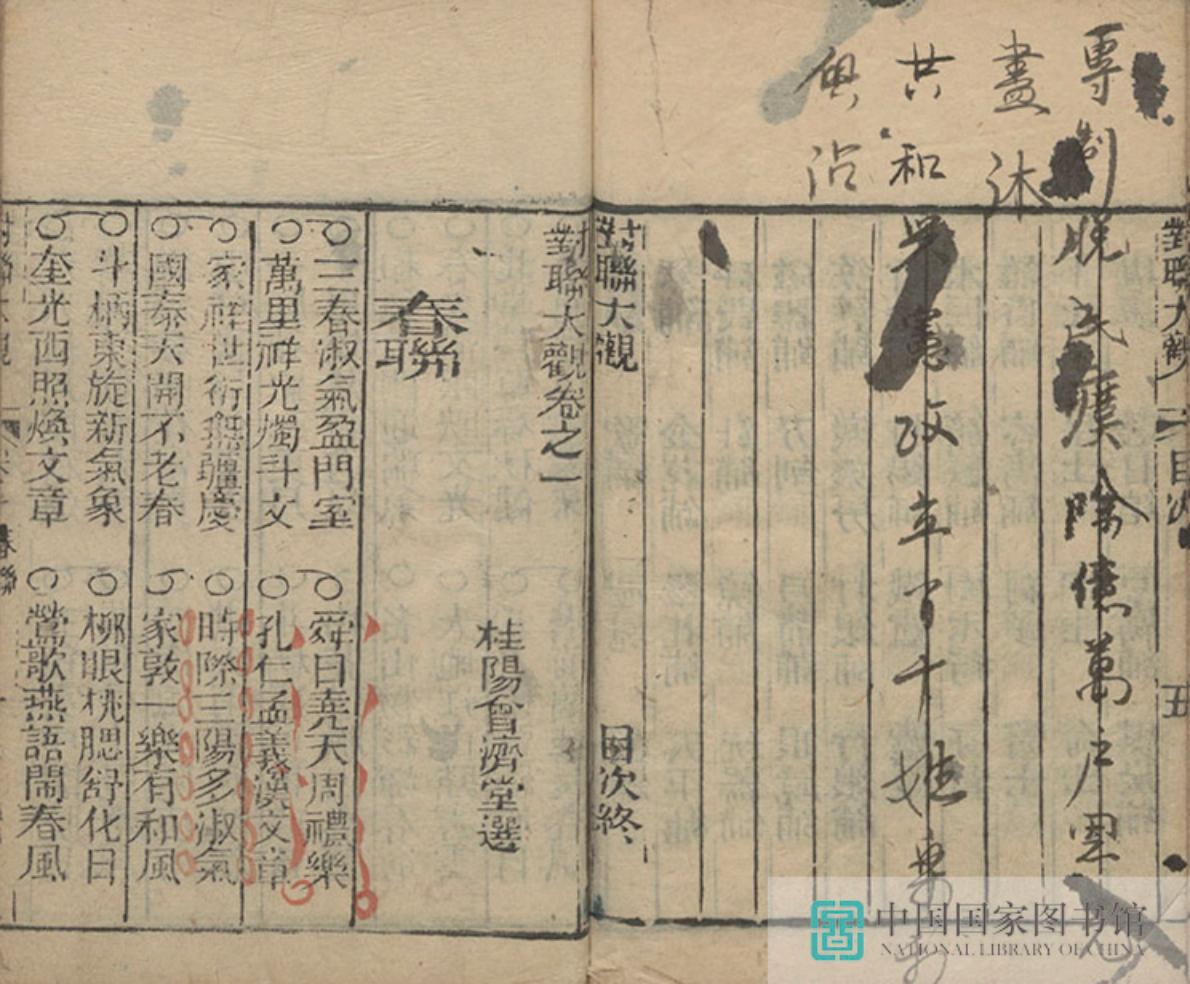 對聯大觀
目次
五
專制
脫民瘼除億萬戶恩
盡沐
共和
憲政立百十姓
與沾
對聯大觀
目次終
對聯大觀卷之一
桂陽曾濟堂選
春聯
三春淑氣盈門室
舜日堯天周禮樂
萬里祥光燭斗文
孔仁孟義漢文章
家祥世衍無疆慶
時際三陽多淑氣
國泰天開不老春
家敦一樂有和風
斗柄東旋新氣象
柳眼桃腮舒化日
奎光西照煥文章
鶯歌燕語鬧春風
春聯
中国国家图书馆
NATIONAL LIBRARY OF CHINA